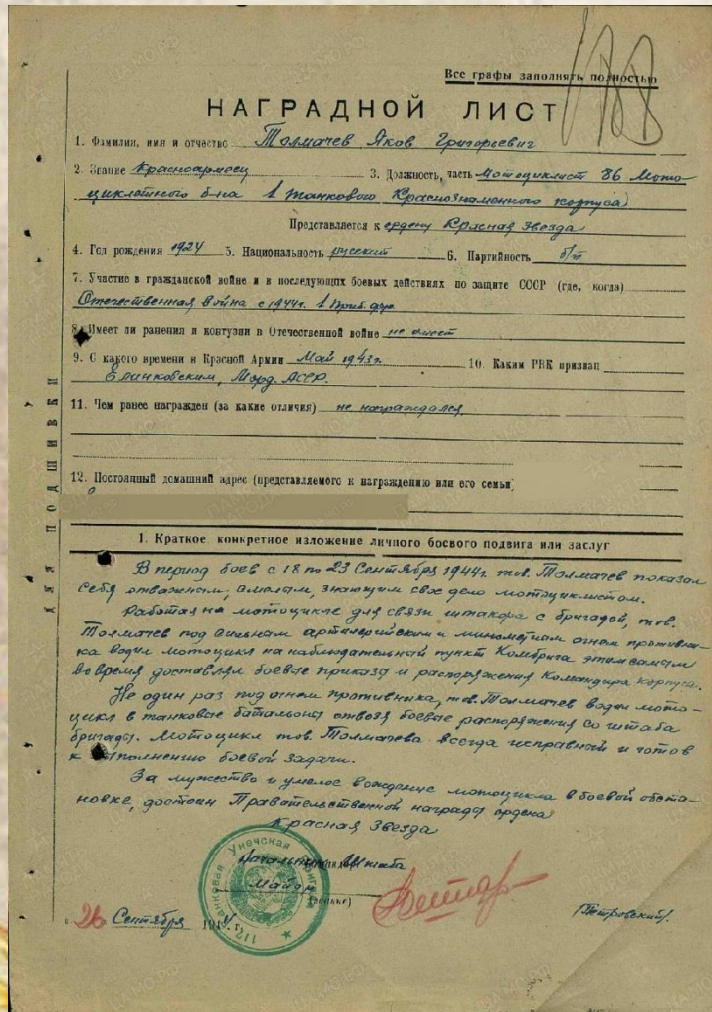 Все графы заполнять полностью
НАГРАДНОЙ ЛИСТ
1. Фамилия, имя и отчество Толмачев Яков Григорьевич
2. Звание Красноармеец 3. Должность, часть Мотоциклист 86 Мото-
циклетного б-на 1 танкового Краснознаменного корпуса
Представляется к ордену Красная Звезда
4. Год рождения 1924 5. Национальность русский 6. Партийность б/п
7. Участие в гражданской войне и в последующих боевых действиях по защите СССР (где, когда)
Отечественная война с 1944г. 1 Приб. фр.
8. Имеет ли ранения и контузии в Отечественной войне не имеет
9. С какого времени в Красной Армии Май 1943г. 10. Каким РВК призван
Морд. АССР.
11. Чем ранее награжден (за какие отличия) не награждался
12. Постоянный домашний адрес (представляемого к награждению или его семьи)
ДЛЯ ПОДШИВКИ
1. Краткое конкретное изложение личного боевого подвига или заслуг
В период боев с 18 по 23 Сентября 1944г. тов. Толмачев показал
себя отважным, смелым, знающим свое дело мотоциклистом.
Работая на мотоцикле для связи штакора с бригадой, тов.
Толмачев под сильным артиллерийским и минометным огнем противни-
ка водил мотоцикл на наблюдательный пункт Комбрига этим самым
во время доставлял боевые приказы и распоряжения Командира корпуса.
Не один раз под огнем противника, тов. Толмачев водил мото-
цикл в танковые батальоны отвозя боевые распоряжения со штаба
бригады. Мотоцикл тов. Толмачева всегда исправный и готов
к выполнению боевой задачи.
За мужество и умелое вождение мотоцикла в боевой обста-
новке, достоин Правительственной награды ордена
Красная Звезда
Начальник Штаба
Майор
(звание)
(Петровский).
26 Сентября 1944 г.
117 Танковая Унечская